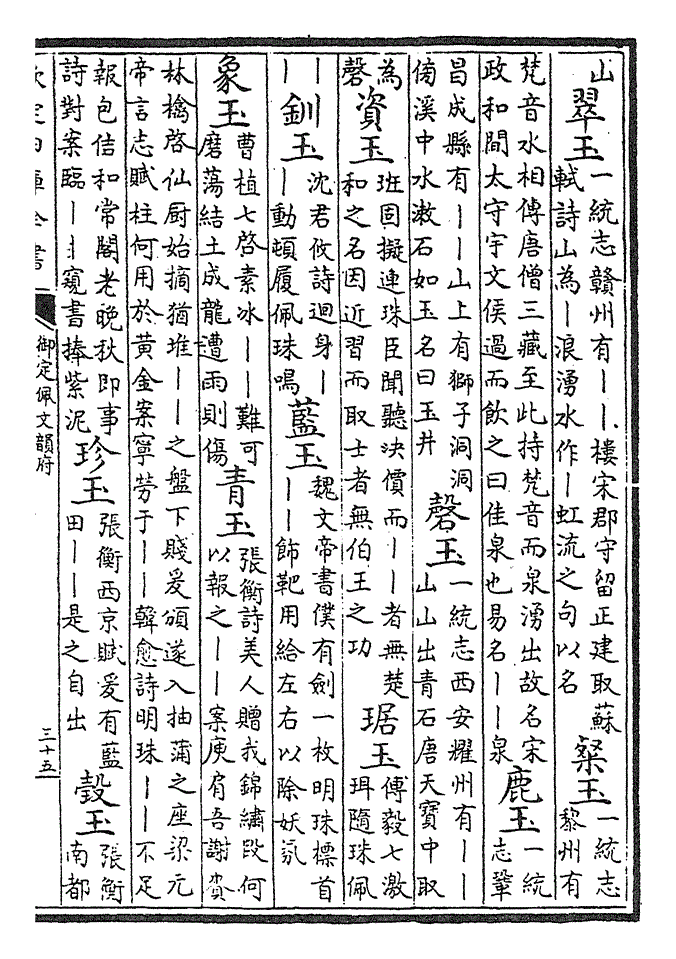 山
翠玉
一統志贛州有｜｜樓宋郡守留正建取蘇
軾詩山為｜浪湧水作｜虹流之句以名
粲玉
一統志
黎州有
梵音水相傳唐僧三藏至此持梵音而泉湧出故名宋
政和間太守宇文侯過而飲之曰佳泉也易名｜｜泉
鹿玉
一統
志鞏
昌成縣有｜｜山上有獅子洞洞
傍溪中水漱石如玉名曰玉井
磬玉
一統志西安耀州有｜｜
山山出青石唐天寶中取
為
磬
資玉
班固擬連珠臣聞聽決價而｜｜者無楚
和之名因近習而取士者無伯王之功
琚玉
傅毅七激
珥隨珠佩
｜
｜
釧玉
沈君攸詩迴身｜
｜動頓履佩珠鳴
藍玉
魏文帝書僕有劍一枚明珠標首
｜｜飾靶用給左右以除妖氛
象玉
曹植七啓素冰｜｜難可
磨蕩結土成龍遭雨則傷
青玉
張衡詩美人贈我錦繡段何
以報之｜｜案庾肩吾謝賚
林檎啓仙厨始摘猶堆｜｜之盤下賤爰頒遂入抽蒲之座梁元
帝言志賦柱何用於黄金案寧勞于｜｜韓愈詩明珠｜｜不足
報包佶和常閣老晚秋即事
詩對案臨｜｜窺書捧紫泥
珍玉
張衡西京賦爰有藍
田｜｜是之自出
瑴玉
張衡
南都
欽定四庫全書
御定佩文韻府
三十五